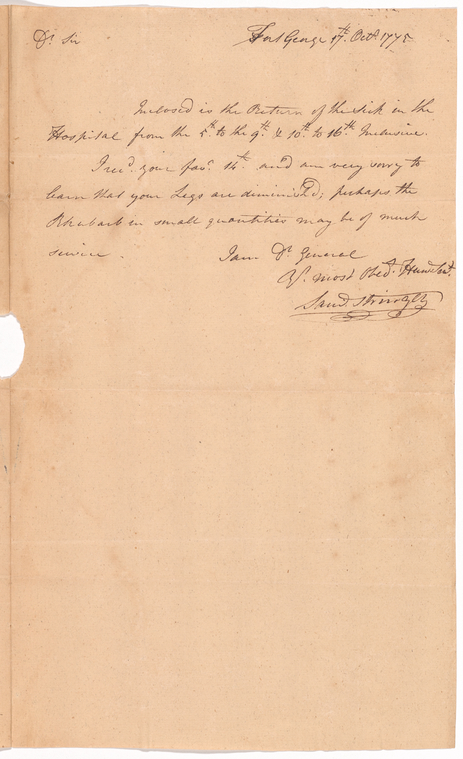 Dr. Sir Fort George 17th. Octr. 1775
Inclosed is the Return of the sick in the
Hospital from the 5th to the 9th. & 10th. to 16th Inclusive.
I recd. your favr. 14th. and am very sorry to
learn that your Legs are diminish'd; perhaps the
Rhubarb in small quantities may be of much
service.
I am Dr. General
Yr. most Obedt. Humb Svt.
Saml. Stringer